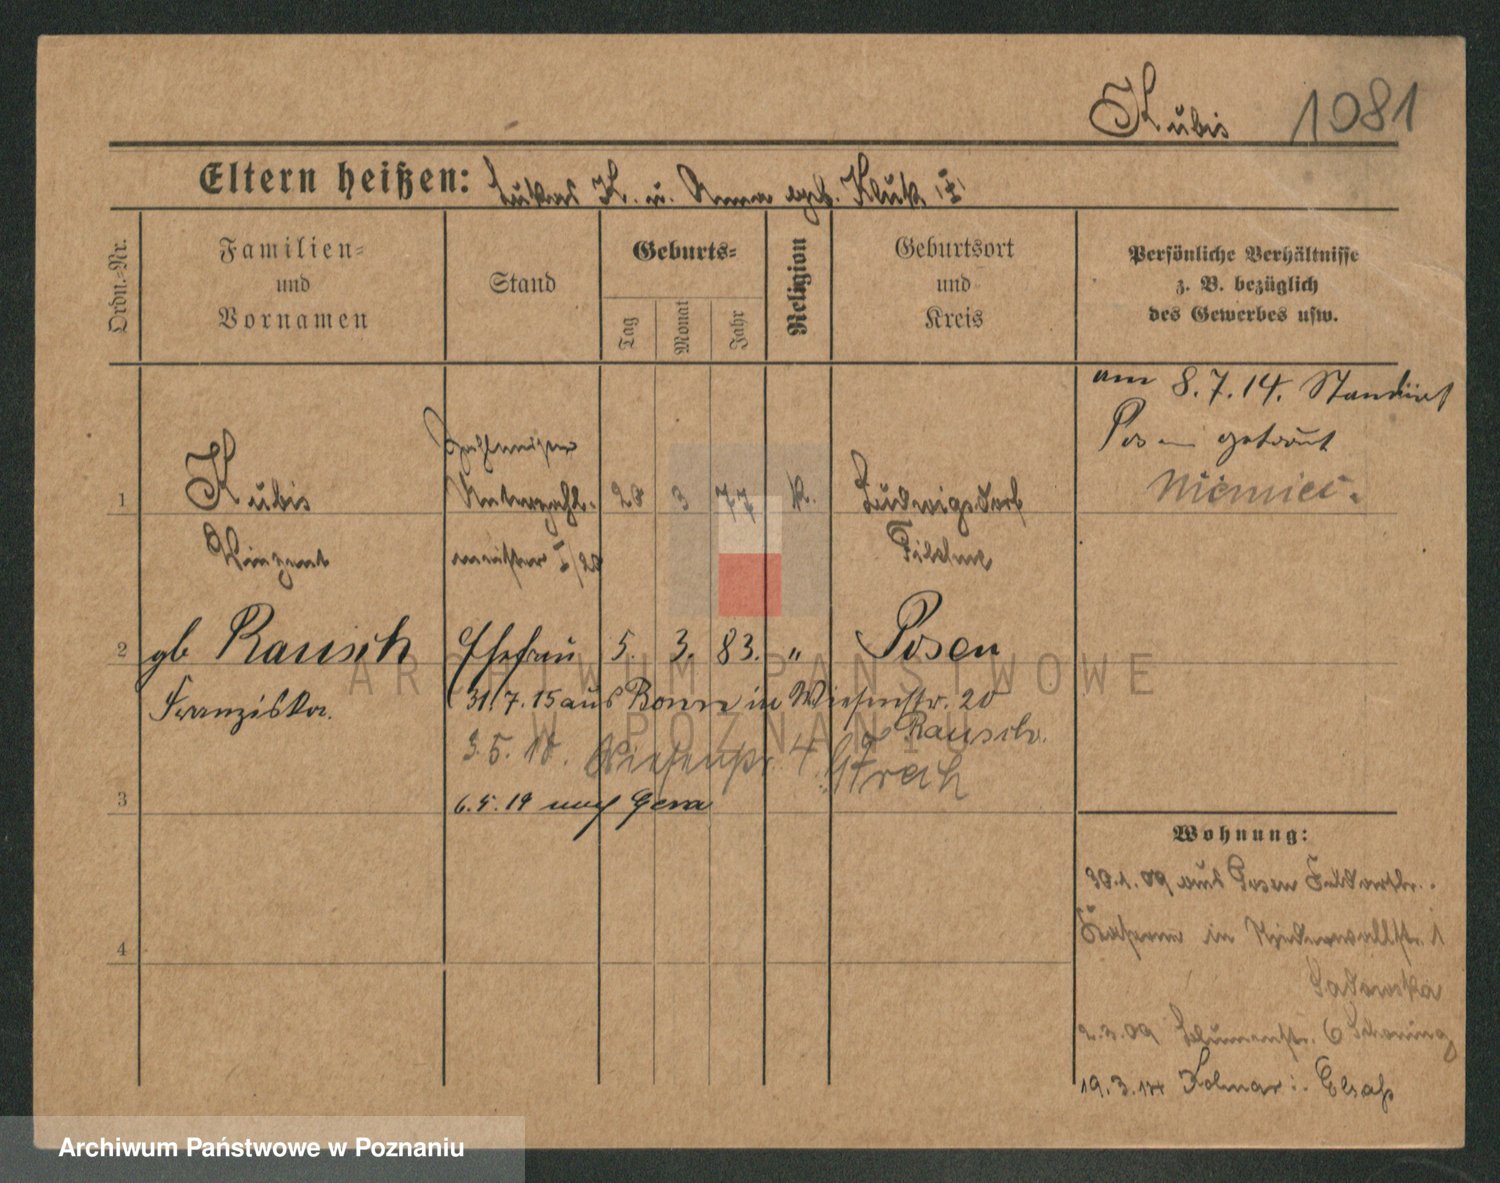 Kubis 1081
Eltern heißen: Lukas K. u. Anna geb. Kluk
Ordn.-Nr.
Familien-
und
Vornamen
Stand
Geburts-
Tag
Monat
Jahr
Religion
Geburtsort
und
Kreis
Persönliche Verhältnisse
z. B. bezüglich
des Gewerbes usw.
am 8.7.14. Standesamt
Posen getraut
Niemiec.
Zahlmeister
1 Kubis Unterzahl- 28 3 77 k. Ludwigsdorf
Vinzent meister I/20 Filehne
2 gb Rausch Ehefrau 5. 3. 83. " Posen
Franziska.
31.7.15 aus Bonn in Wiesenstr. 20
Rausch.
3.5.18. Wiesenstr. 4
3
6.5.19 nach Gera
4
Wohnung:
30.1.09 aus Posen
Kaserne in Niederwallstr. 1
Sadowska
2.3.09 Blumenstr. 6 Schoning
19.3.14 Kolmar i. Elsaß
ARCHIWUM PAŃSTWOWE
W POZNANIU
Archiwum Państwowe w Poznaniu